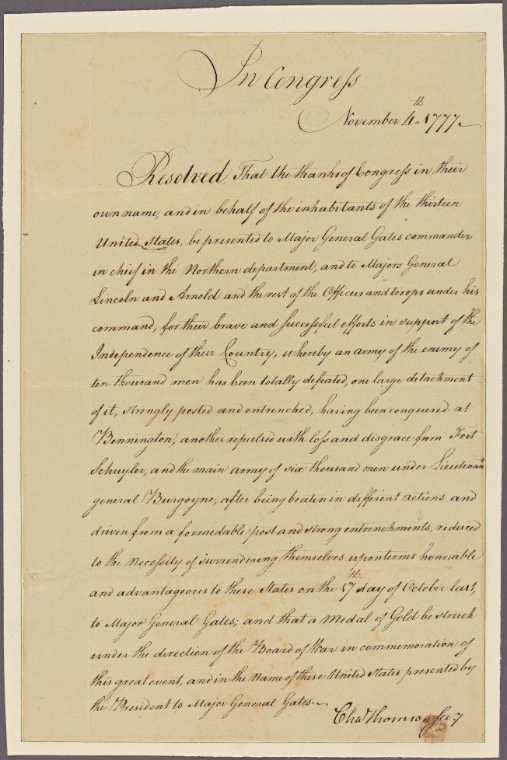 In Congress
November 4th 1777
Resolved, That the thanks of Congress in their
own name, and in behalf of the inhabitants of the thirteen
United States, be presented to Major General Gates commander
in chief in the Northern department, and to Majors General
Lincoln and Arnold and the rest of the Officers and troops under his
command, for their brave and successful efforts in support of the
Independence of their Country, whereby an army of the enemy of
ten thousand men has been totally defeated, one large detachment
of it, strongly posted and entrenched, having been conquered at
Bennington, another repulsed with loss and disgrace from Fort
Schuyler, and the main army of six thousand men under Lieutenant
general Burgoyne, after being beaten in different actions and
driven from a formidable post and strong entrenchments, reduced
to the necessity of surrendering themselves upon terms honorable
and advantageous to these States on the 17th day of October last,
to Major General Gates; and that a Medal of Gold be struck
under the direction of the Board of War in commemoration of
this great event, and in the name of these United States presented by
the President to Major General Gates.
Chas Thomson secy